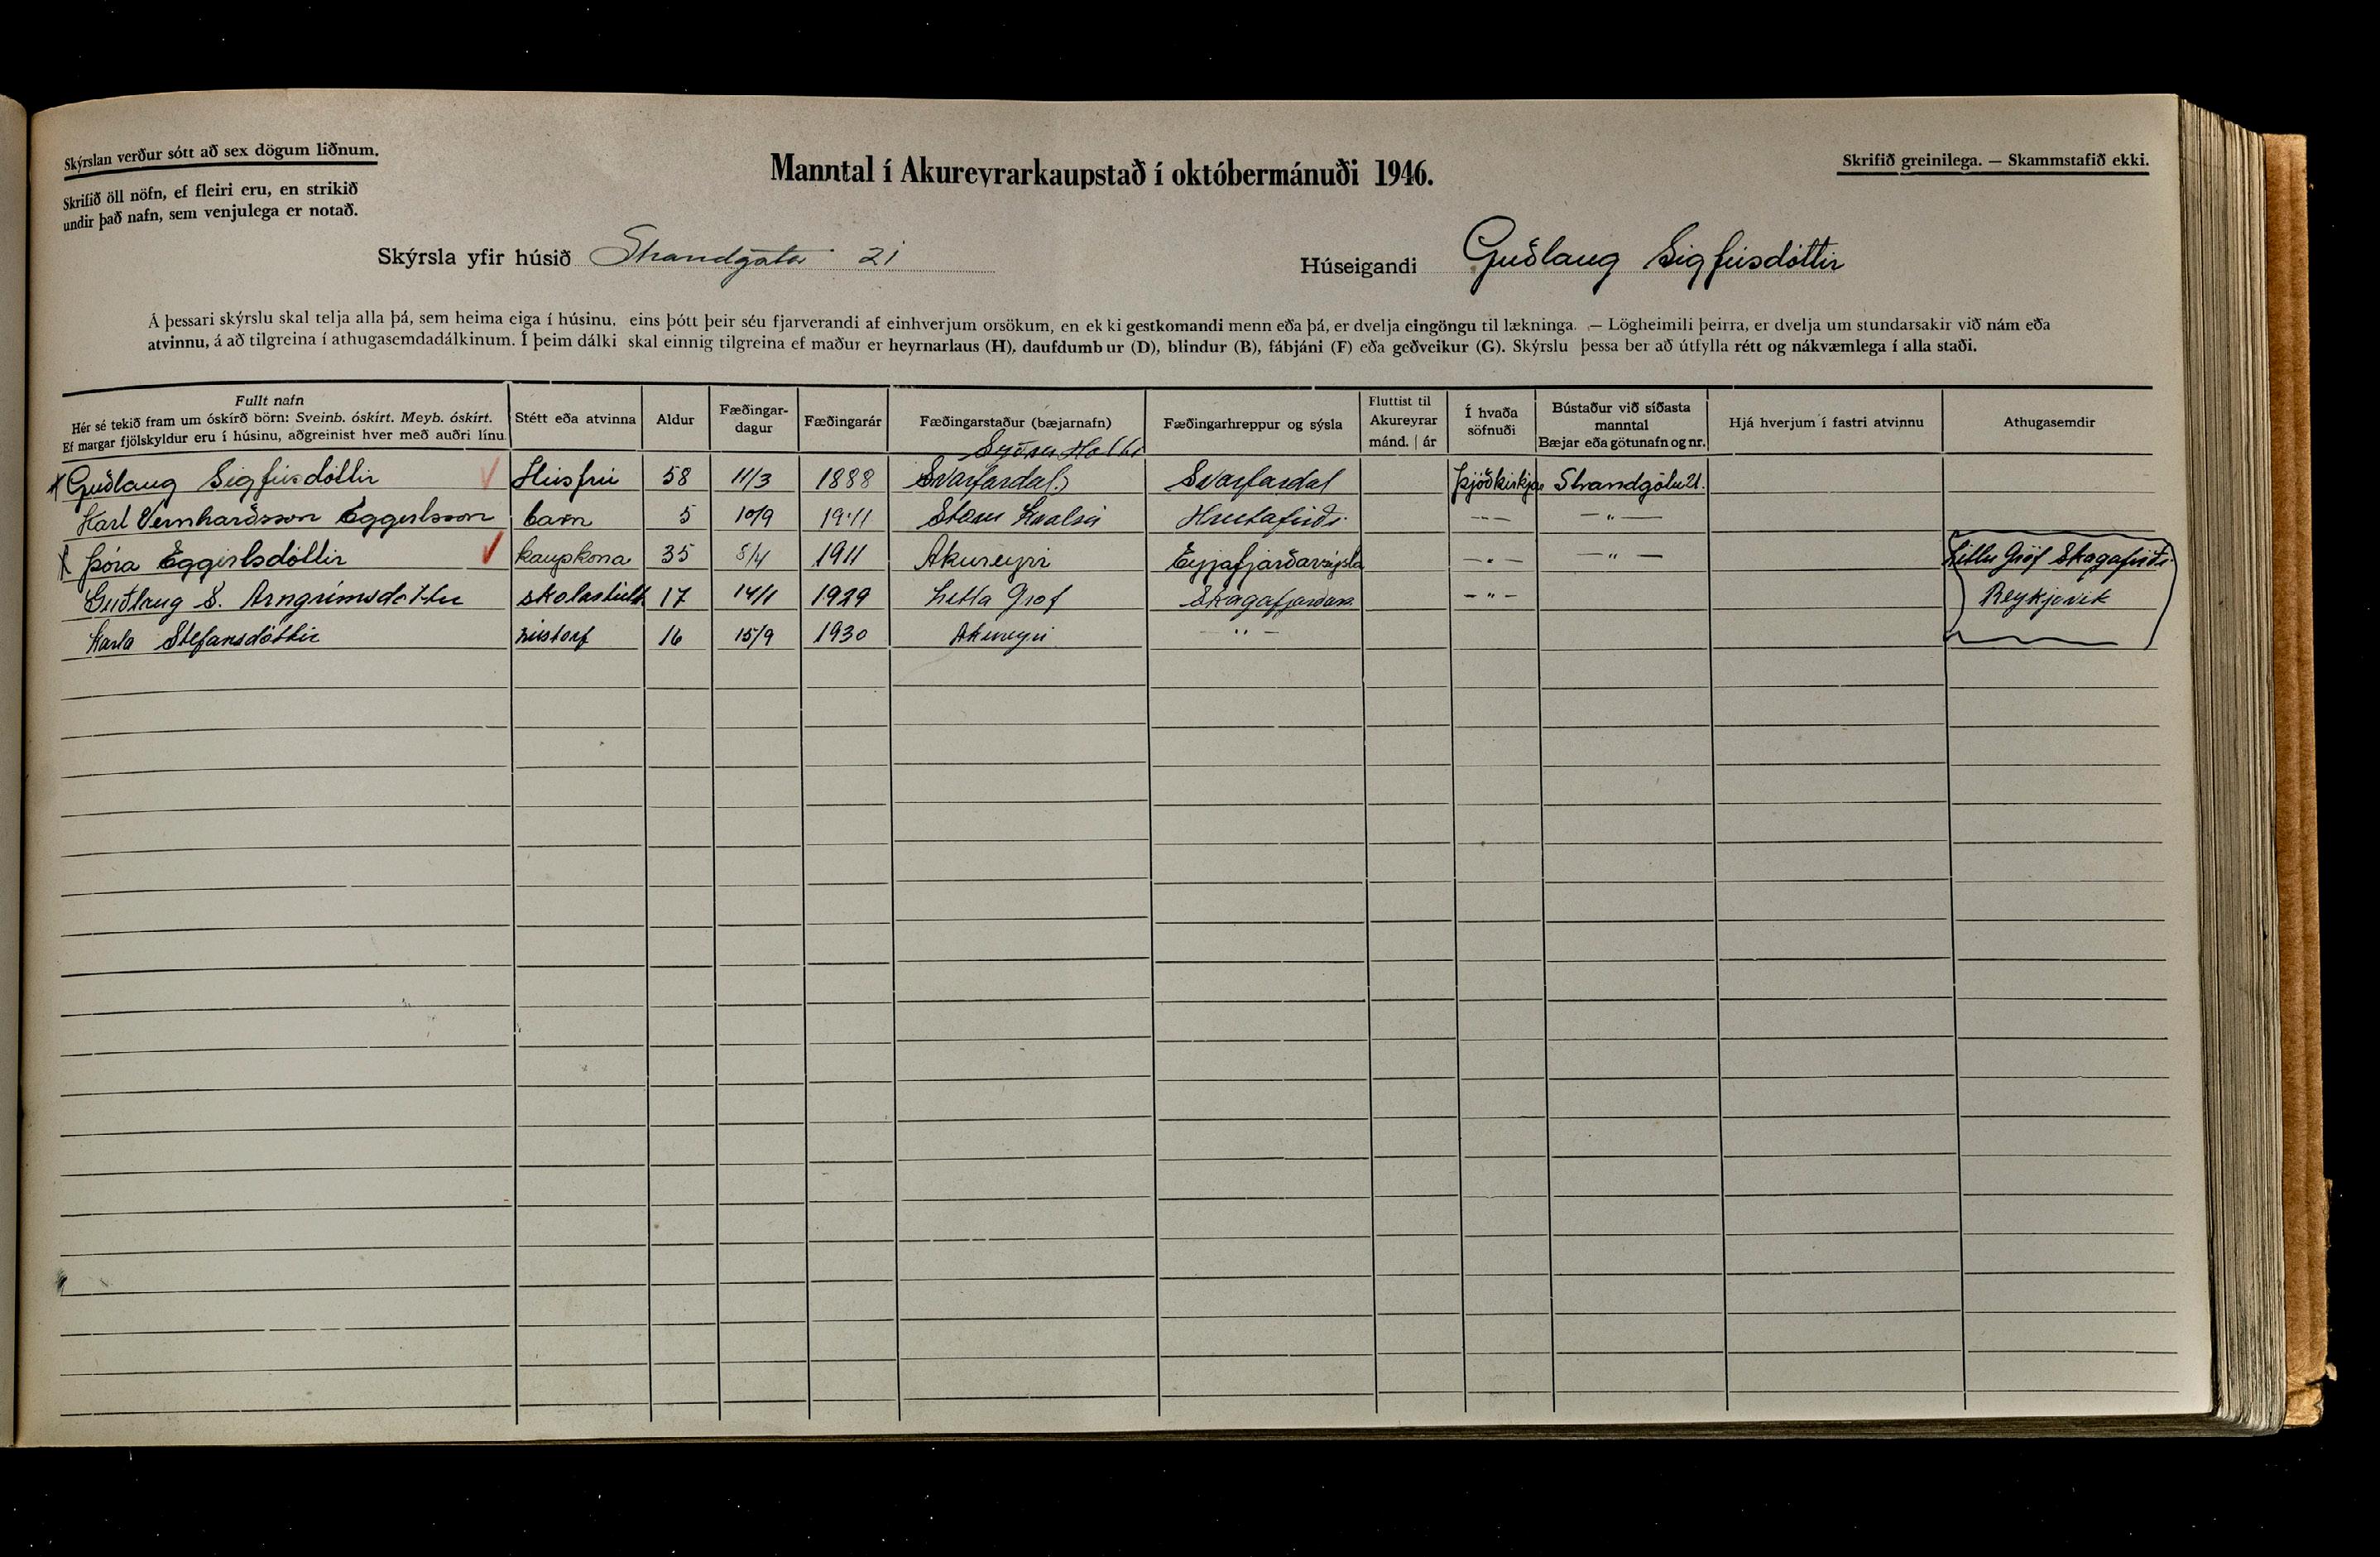 Skýrslan verður sótt að sex dögum liðnum.
Skrifið öll nöfn, ef fleiri eru, en strikið
undir það nafn, sem venjulega er notað.
Manntal í Akureyrarkaupstað í októbermánuði 1946.
Skrifið greinilega. — Skammstafið ekki.
Skýrsla yfir húsið Strandgata 21
Húseigandi Guðlaug Sigfúsdóttir
Á þessari skýrslu skal telja alla þá, sem heima eiga í húsinu, eins þótt þeir séu fjarverandi af einhverjum orsökum, en ekki gestkomandi menn eða þá, er dvelja eingöngu til lækninga. — Lögheimili þeirra, er dvelja um stundarsakir við nám eða
atvinnu, á að tilgreina í athugasemdadálkinum. Í þeim dálki skal einnig tilgreina ef maður er heyrnarlaus (H), daufdumbur (D), blindur (B), fábjáni (F) eða geðveikur (G). Skýrslu þessa ber að útfylla rétt og nákvæmlega í alla staði.
Fullt nafn
Hér sé tekið fram um óskírð börn: Sveinb. óskírt. Meyb. óskírt.
Ef margar fjölskyldur eru í húsinu, aðgreinist hver með auðri línu
Stétt eða atvinna
Aldur
Fæðingar-
dagur
Fæðingarár
Fæðingarstaður (bæjarnafn)
Fæðingarhreppur og sýsla
Fluttist til
Akureyrar
mánd. | ár
Í hvaða
söfnuði
Bústaður við síðasta
manntal
Bæjar eða götunafn og nr.
Hjá hverjum í fastri atvinnu
Athugasemdir
Guðlaug Sigfúsdóttir Húsfrú 58 11/3 1888 Svarfardal Svarfardal Þjóðkirkju Strandgötu 21.
Karl Vernharðsson Eggertsson barn 5 10/9 Hrutafirði - - — " —
Þóra Eggertsdóttir kaupkona 35 8/4 1911 Akureyri Eyjafjarðarsýsla - " - — " — Litlu Gröf Skagafirði
Guðlaug S. Arngrimsdottir 17 14/1 1929 Litla Grof - " - Reykjavik
Karla Stefansdóttir 16 15/9 1930 Akureyri - " -